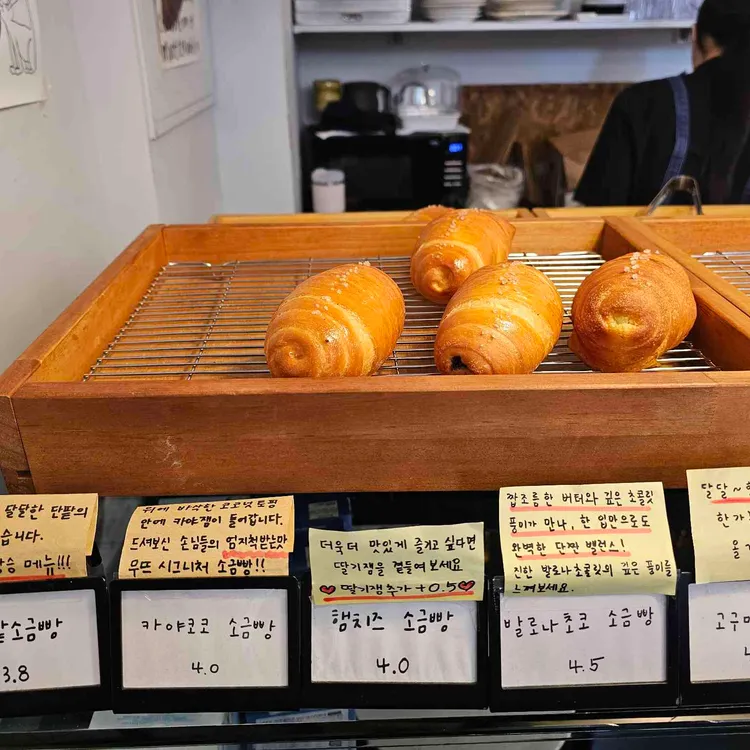 달달한 단팥의
습니다.
메뉴!!!
소금빵
3.8
위에 바삭한 코코넛토핑
안에 카야잼이 들어갑니다.
드셔보신 손님들의 엄지척받는
우뜨 시그니처 소금빵!!
카야코코 소금빵
4.0
더욱더 맛있게 즐기고 싶다면
딸기잼을 곁들여보세요
딸기잼추가 +0.5
햄치즈 소금빵
4.0
짭조름한 버터와 깊은 초콜릿
풍미가 만나, 한 입만으로도
완벽한 단짠 밸런스!
진한 발로나초콜릿의 깊은 풍미를
느껴보세요.
발로나초코 소금빵
4.5
달달~
한가
올
고구마